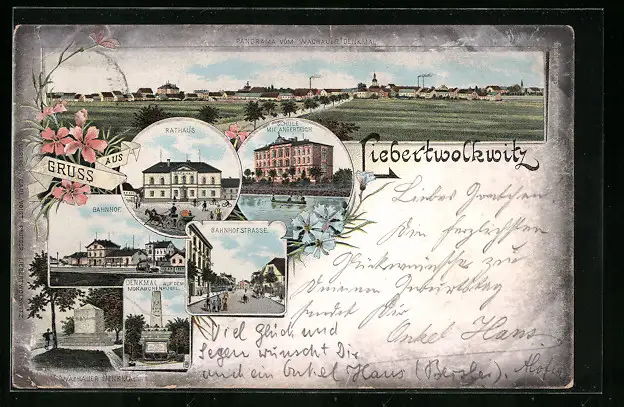 PANORAMA VOM WACHAUER DENKMAL
GRUSS AUS
Liebertwolkwitz
RATHAUS
SCHULE
MIT ANGERTEICH
BAHNHOF
BAHNHOFSTRASSE
DENKMAL AUF DEM
MONARCHENHÜGEL
WACHAUER DENKMAL
Liebes Gretchen
Die herzlichsten
Glückwünsche zu
Deinem Geburtstag
sendet Dir
Onkel Hans.
Viel Glück und
Segen wünscht Dir
auch ein Onkel Hans